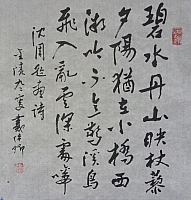 碧水丹山映杖藜
夕陽猶在小橋西
微吟不道驚溪鳥
飛入亂雲深處啼
沈周題畫詩